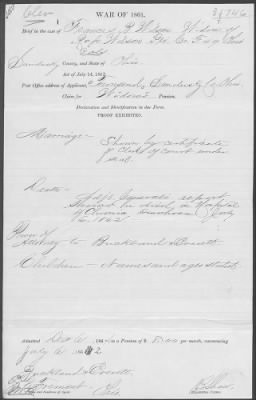 Clev
WAR OF 1861.
Brief in the case of Frances B. Wilson Widow of
Wilson Co. Ohio
Sandusky County, and State of Ohio.
Act of July 14, 1862.
Post Office address of Applicant, Townsend, Sandusky Co. Ohio
Claim for Widow's Pension.
Declaration and Identification in due Form.
PROOF EXHIBITED.
Marriage - Shown by certificate
of Clerk of court under
seal.
Death - Adjt. Generals report
in hospital
of Chronic Diarrhoea July
6, 1862
Power of
Attorney to Buckland & Everett
Children - Names and ages stated.
Admitted Dec 6, 186 to a Pension of $8.00 per month, commencing
July 6, 1862
Buckland & Everett
Fremont